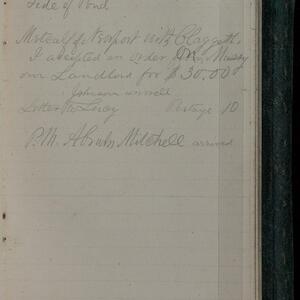 side of Pond
Metcalf for Newport with Claggett.
I accepted an order Dr. Massey
our Landlord for $30.00
Johnson
Letter to Lucy Postage 10
P.M. Abram Mitchell arrived